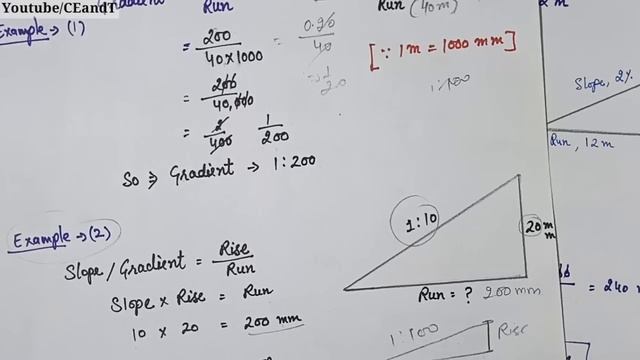 Youtube/CEandT
Gradient
Run
Run (40m)
2 m
Example → (1)
= 200
40×1000
= 0.20
40
[∵ 1m = 1000 mm]
= 200
40,000
1
20
1:100
Slope, 2%
= 2
400
1
200
Run, 12 m
So ⇒ Gradient → 1:200
Example → (2)
1:10
20 mm
Slope/Gradient = Rise
Run
Run = ? 200mm
= 240
Slope × Rise = Run
10 × 20 = 200 mm
1:100
Rise